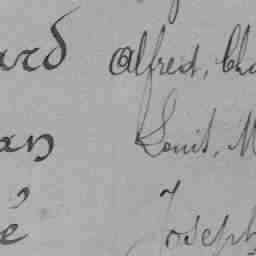 ard Alfred, Cha
an Louis, M
é Joseph